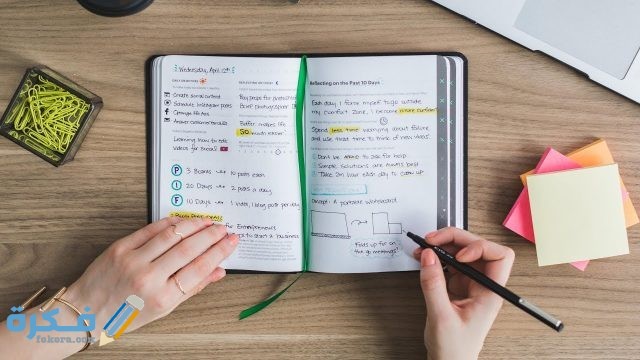 Wednesday, April 12th
DAILY OBJECTIVES
Create social content
Schedule Instagram posts
Organize files
Answer customer emails
Learning how to edit
videos for
REFLECTING ON TODAY
Buffer makes life
SO much easier.
P 3 Boards 10 pins each
I 20 Days 2 posts a day
F 10 Days 1 video, 1 blog post per day
Blog post ideas
for Entrepreneurs
to start a business
Reflecting on the Past 10 Days
Each day, I force myself to go outside
my comfort zone. I become more confident
Spend less time worrying about failure
and use that time to think of new videos.
1. Don't be AFRAID to ask for help
2. Simple solutions are always best
3. Take an hour each day to
Concept: A portable whiteboard
Folds up for on-
the-go meetings!
فكرة
fekera.com